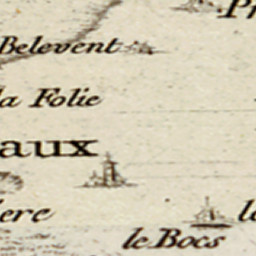 Pr
Belevent
la Folie
aux
ere
le
le Bocs